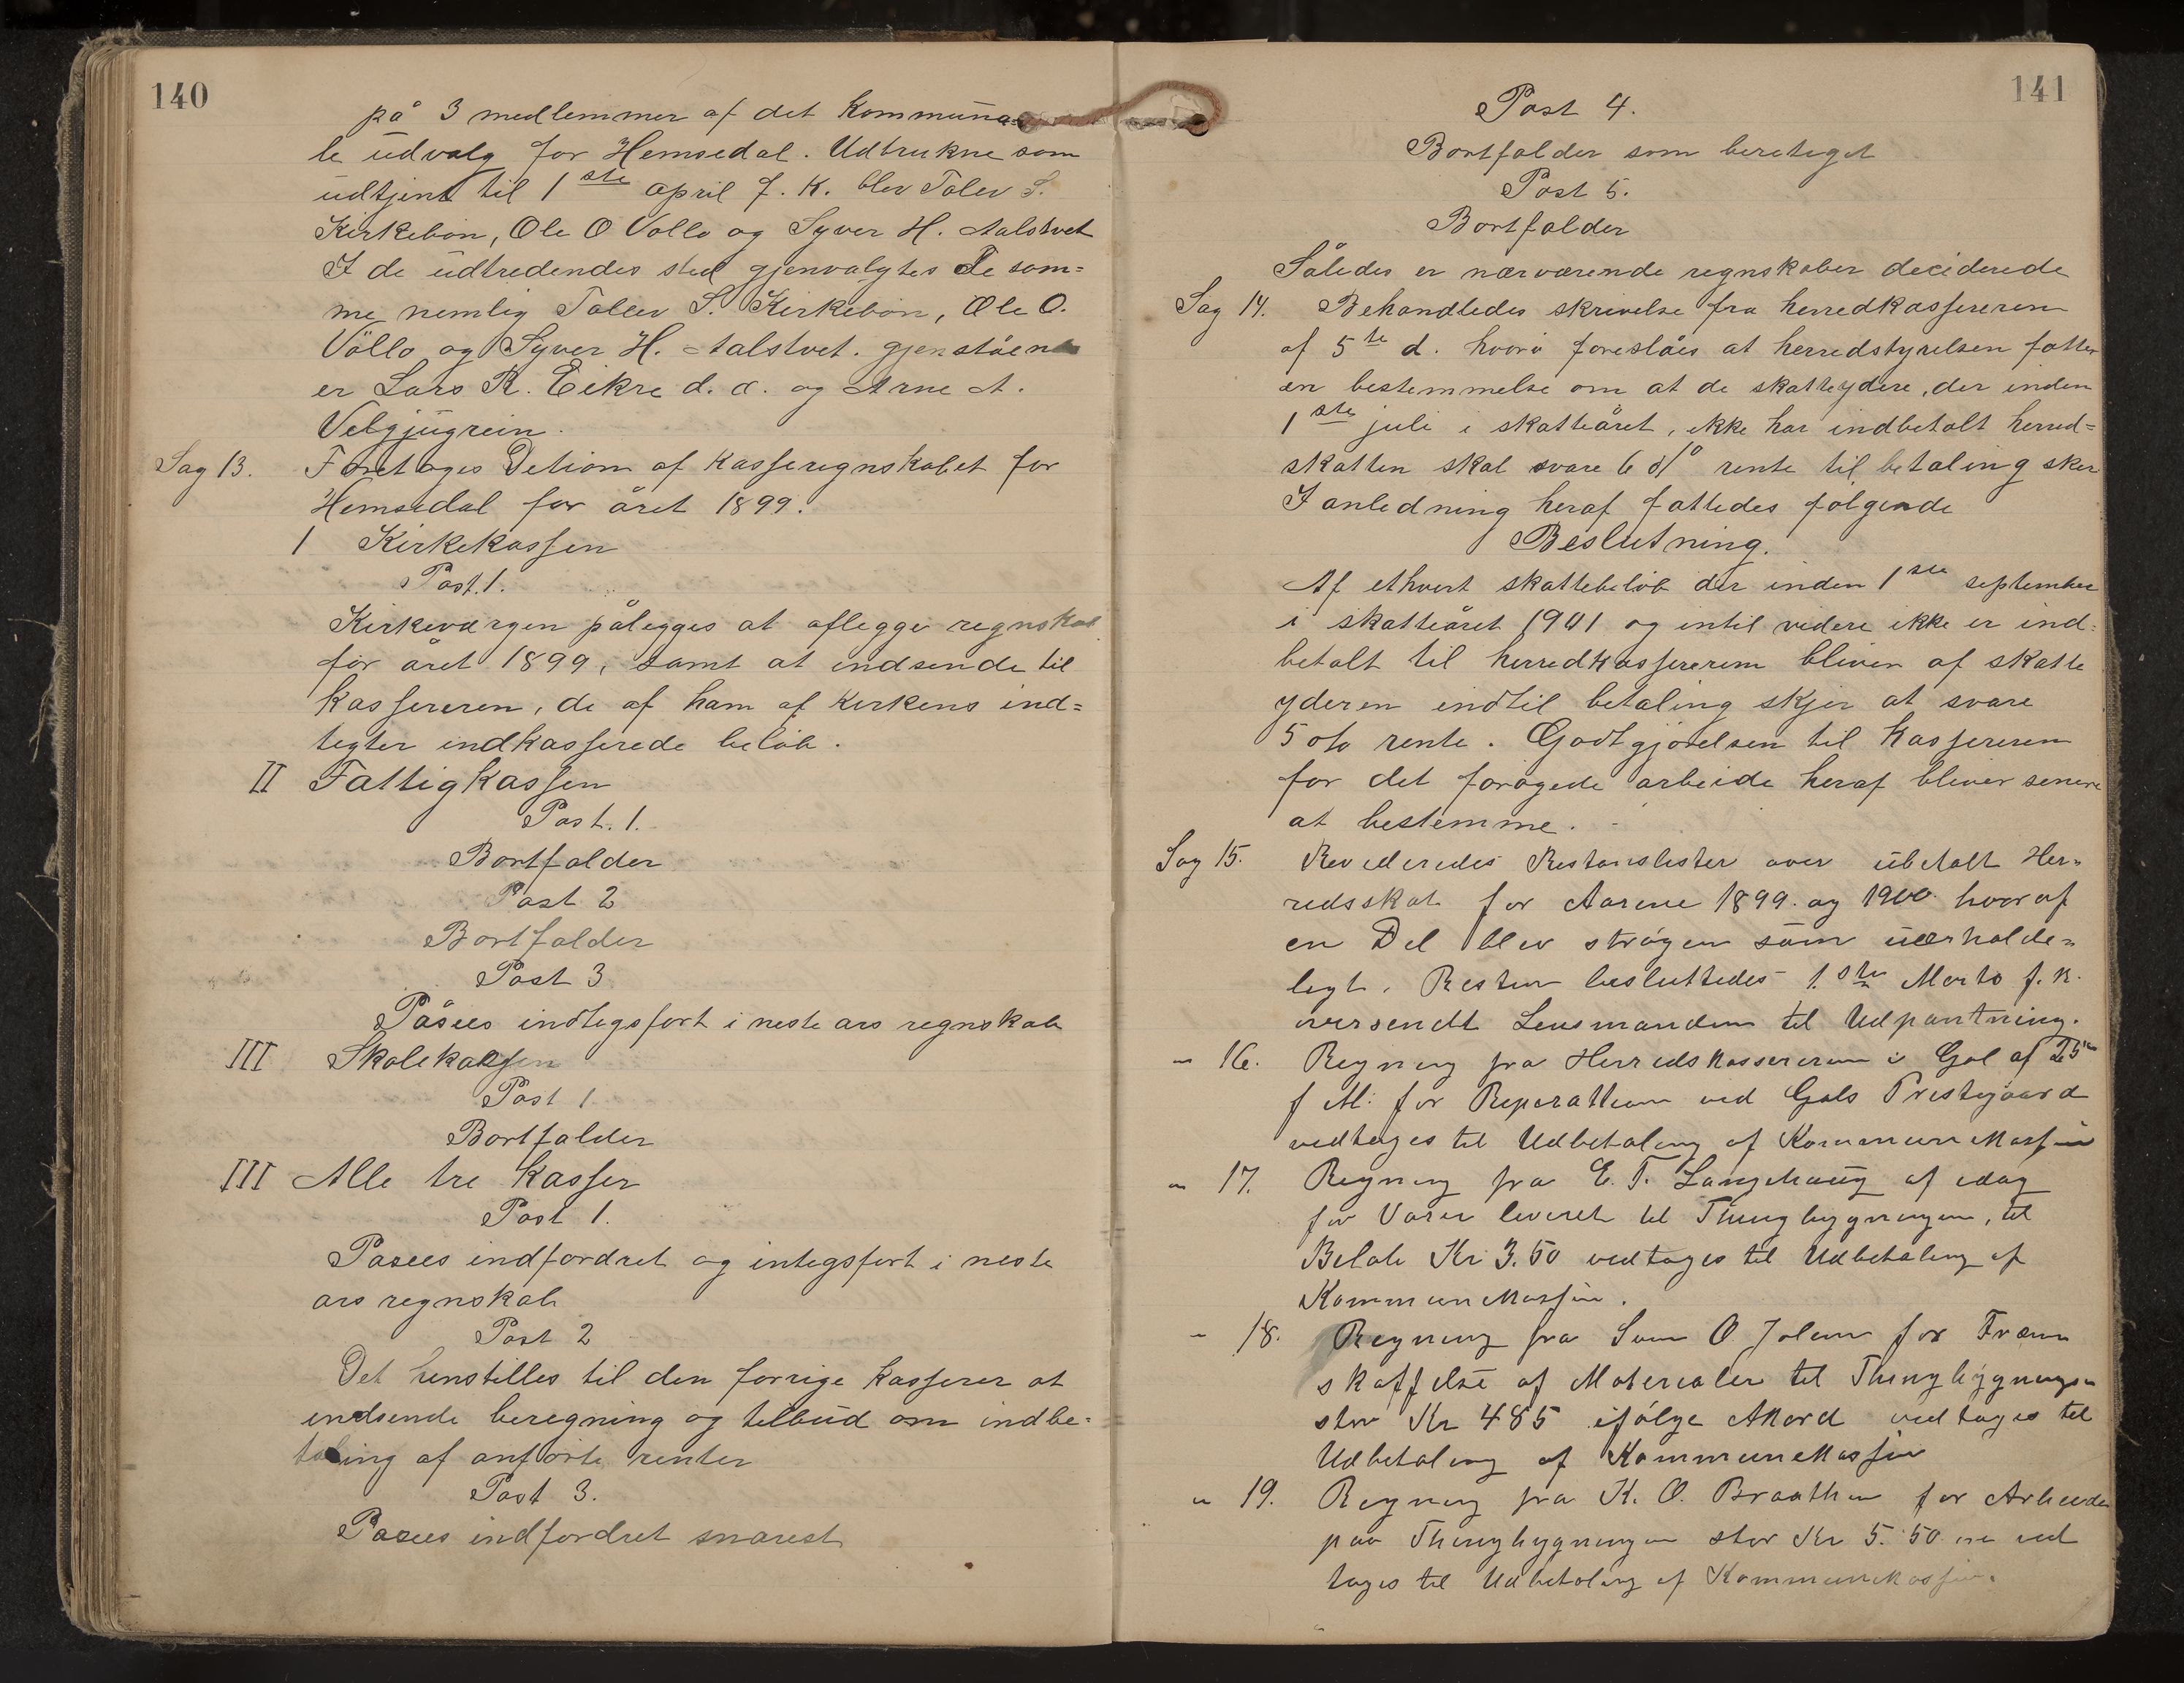 140
på 3 medlemmer af det Kommuna-
le udvalg for Hemsedal. Udtrukne som
udtjent til 1ste april f. K. blev Tolev S.
Kirkebøn, Ole O Vøllo og Syver H. Aalstvet
I de udtredendes sted gjenvalgtes De sam=
me nemlig Tollev S. Kirkebøn, Ole O.
Vøllo og Syver H. Aalstvet. gjenstående
er Lars R. Eikre d. æ. og Arne A.
Velgjugrein.
Sag 13. Foretages Detion af Kasseregnskabet for
Hemsedal for året 1899.
1 Kirkekassen
Post. 1.
Kirkeværgen pålegges at aflegge regnskab
for året 1899, samt at indsende til
Kassereren, de af ham af Kirkens ind=
tegter indkasserede beløb.
II Fattigkassen
Post. 1.
Bortfalder
Post 2
Bortfalder
Post 3
Påsees indtegsført i neste ars regnskab
III Skolekassen
Post 1
Bortfalder
III Alle tre Kasser
Post 1.
Pasees indfordret og integsført i neste
ars regnskab
Post 2
Det henstilles til den forrige Kasserer at
endsende beregning og tilbud om indbe=
taling af anførte renter
Post 3.
Pasees indfordret snarest
141
Post 4.
Bortfalder som beretiget
Post 5.
Bortfalder
Således er nærværende regnskaber deciderede
Sag 14. Behandledes skrivelse fra herredkassereren
af 5te d. hvori foreslåes at herredstyrelsen fatter
en bestemmelse om at de skatteydere, der inden
1ste juli i skatteåret, ikke har indbetalt herred=
skatten skal svare 6 o/o rente til betaling sker
I anledning heraf fattedes følgende
Beslutning.
Af ethvert skattebeløb der inden 1ste september
i skatteåret 1901 og intil videre ikke er ind=
betalt til herredkassereren bliver af skatte
yderen indtil betaling skjer at svare
5 o/o rente. Godtgjørelsen til Kassereren
for det forøgede arbeide heraf bliver senere
at bestemme.
Sag 15. Revideredes Restanslister over ubetalt Her=
redsskat for Aarene 1899. og 1900. hvoraf
en Del blev strøgen som uerholde=
ligt. Resten besluttedes 1.ste Marts f. K.
oversendt Lensmanden til Udpantning.
" 16. Regning fra Herredskassereren i Gol af 25de
f M. for Reperationer ved Gols Prestegaard
vedtages til Udbetaling af Kommunekassen
" 17. Regning fra E. T. Langehaug af idag
for Varer leveret til Thingbygningen, til
Beløb Kr 3.50 vedtages til Udbetaling af
Kommunekassen.
" 18. Regning fra Sven O Jolem for Frem
skaffelse af Materialer til Thingbygningen
stor Kr 485 ifølge Akkord vedtages til
Udbetaling af Kommunekassen
" 19. Regning fra K. O. Braathen for Arbeide
paa Thingbygningen stor Kr 5.50 øre ved
tages til Udbetaling af Kommunekassen.